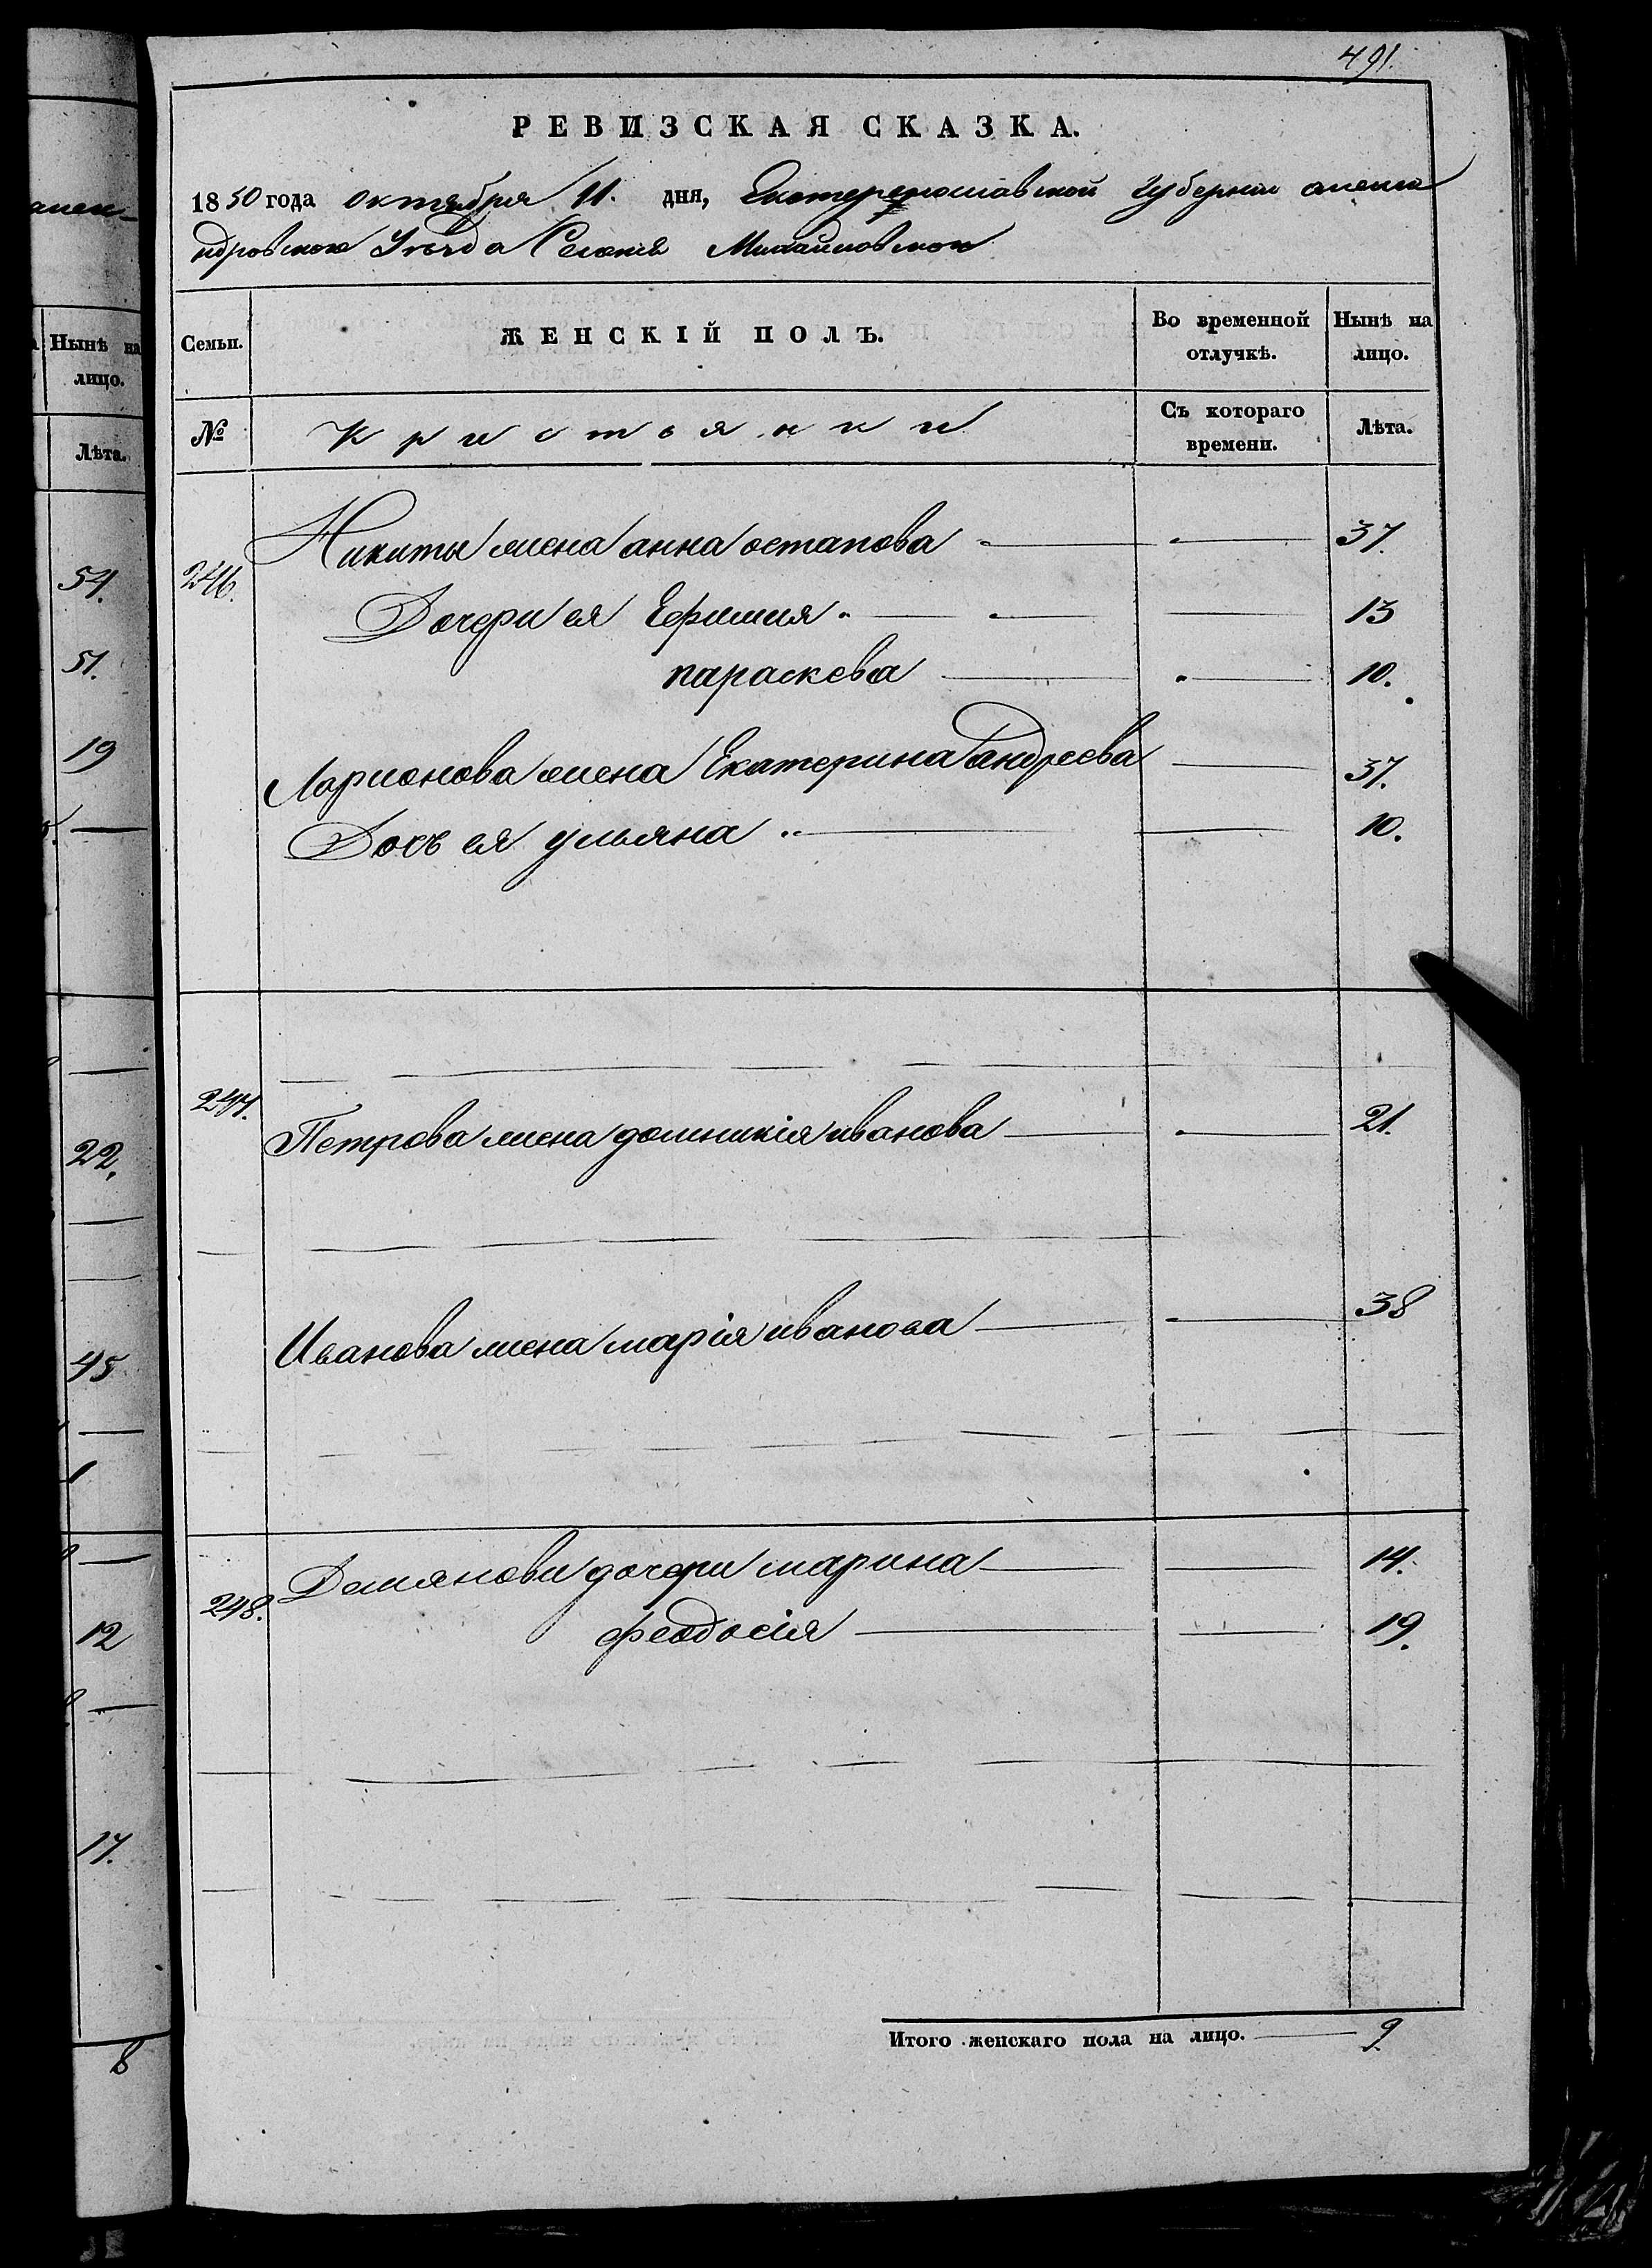 491.
РЕВИЗСКАЯ СКАЗКА.
1850 года октября 11. дня, Екатеринославской губернии алекса
ндровскою Уѣзда Селенія Михайловкою
Семьи.
ЖЕНСКІЙ ПОЛЪ.
Во временной отлучкѣ.
Нынѣ на лицо.
№
Кристьянки
Съ котораго времени.
Лѣта.
246. Никиты жена анна остапова 37.
Дочери ея Ефимия 13
параскева 10.
Ларионова жена Екатерина андреева 37.
Дочь ея ульяна 10.
247. Петрова жена домникія иванова 21.
Иванова жена марія иванова 38
248. Демянови дочери марина 14.
феодосія 19.
Итого женскаго пола на лицо. 9
Нынѣ на
лицо.
Лѣта.
54.
51.
19
22.
45
12
17.
8